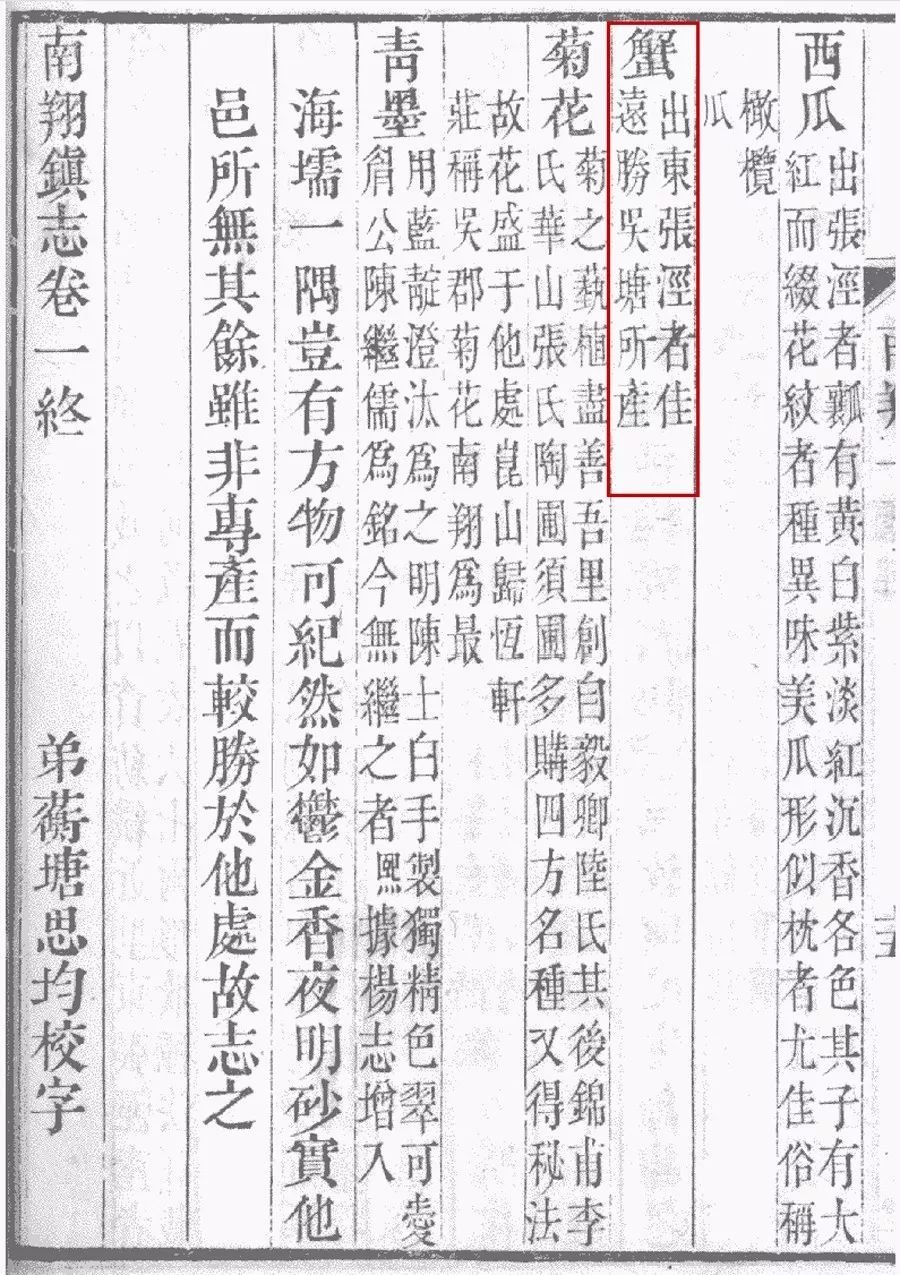 西瓜
出張涇者瓤有黃白紫淡紅沉香各色其子有大
紅而綴花紋者種異味美瓜形似枕者尤佳俗稱
橄欖
瓜
蟹
出東張涇者佳
遠勝吳塘所產
菊花
菊之蓺植盡善吾里創自毅卿陸氏其後錦甫李
氏華山張氏陶圃須圃多購四方名種又得秘法
故花盛于他處崑山歸恆軒
莊稱吳郡菊花南翔爲最
靑墨
用藍靛澄汰爲之明陳士白手製獨精色翠可愛
眉公陳繼儒爲銘今無繼之者熙據楊志增入
海壖一隅豈有方物可紀然如鬱金香夜明砂實他
邑所無其餘雖非專產而較勝於他處故志之
南翔鎮志卷一終 弟蘅塘思均校字